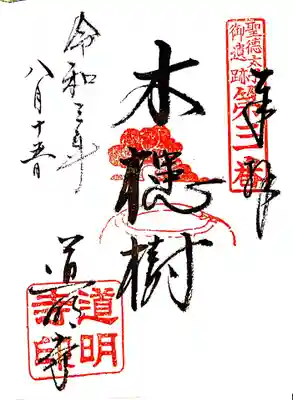 奉拝
聖徳太子
御遺跡第三番
木槵樹
道明寺
道明
寺印
令和三年
八月十五日